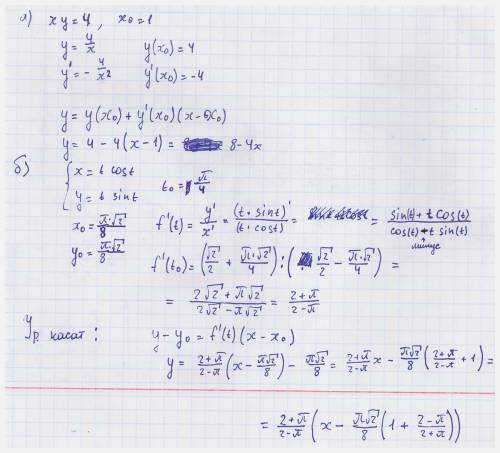 а) xy = 4, x₀ = 1
y = 4/x y(x₀) = 4
y' = - 4/x² y'(x₀) = -4
y = y(x₀) + y'(x₀)(x - x₀)
y = 4 - 4(x - 1) = 8 - 4x
б) { x = t cost
y = t sint t₀ = π/4
x₀ = π·√2/8 f'(t) = y'/x' = (t·sint)'/(t·cost)' = = sin(t) + t cos(t)/cos(t) - t sin(t)
минус
y₀ = π·√2/8 f'(t₀) = (√2/2 + π·√2/4) : (√2/2 - π·√2/4) =
= 2√2 + π√2/2√2 - π√2 = 2+π/2-π
Ур. касат: y - y₀ = f'(t)(x - x₀)
y = 2+π/2-π (x - π√2/8) - π√2/8 = 2+π/2-π x - π√2/8 (2+π/2-π + 1) =
= 2+π/2-π (x - π√2/8 (1 + 2-π/2+π))